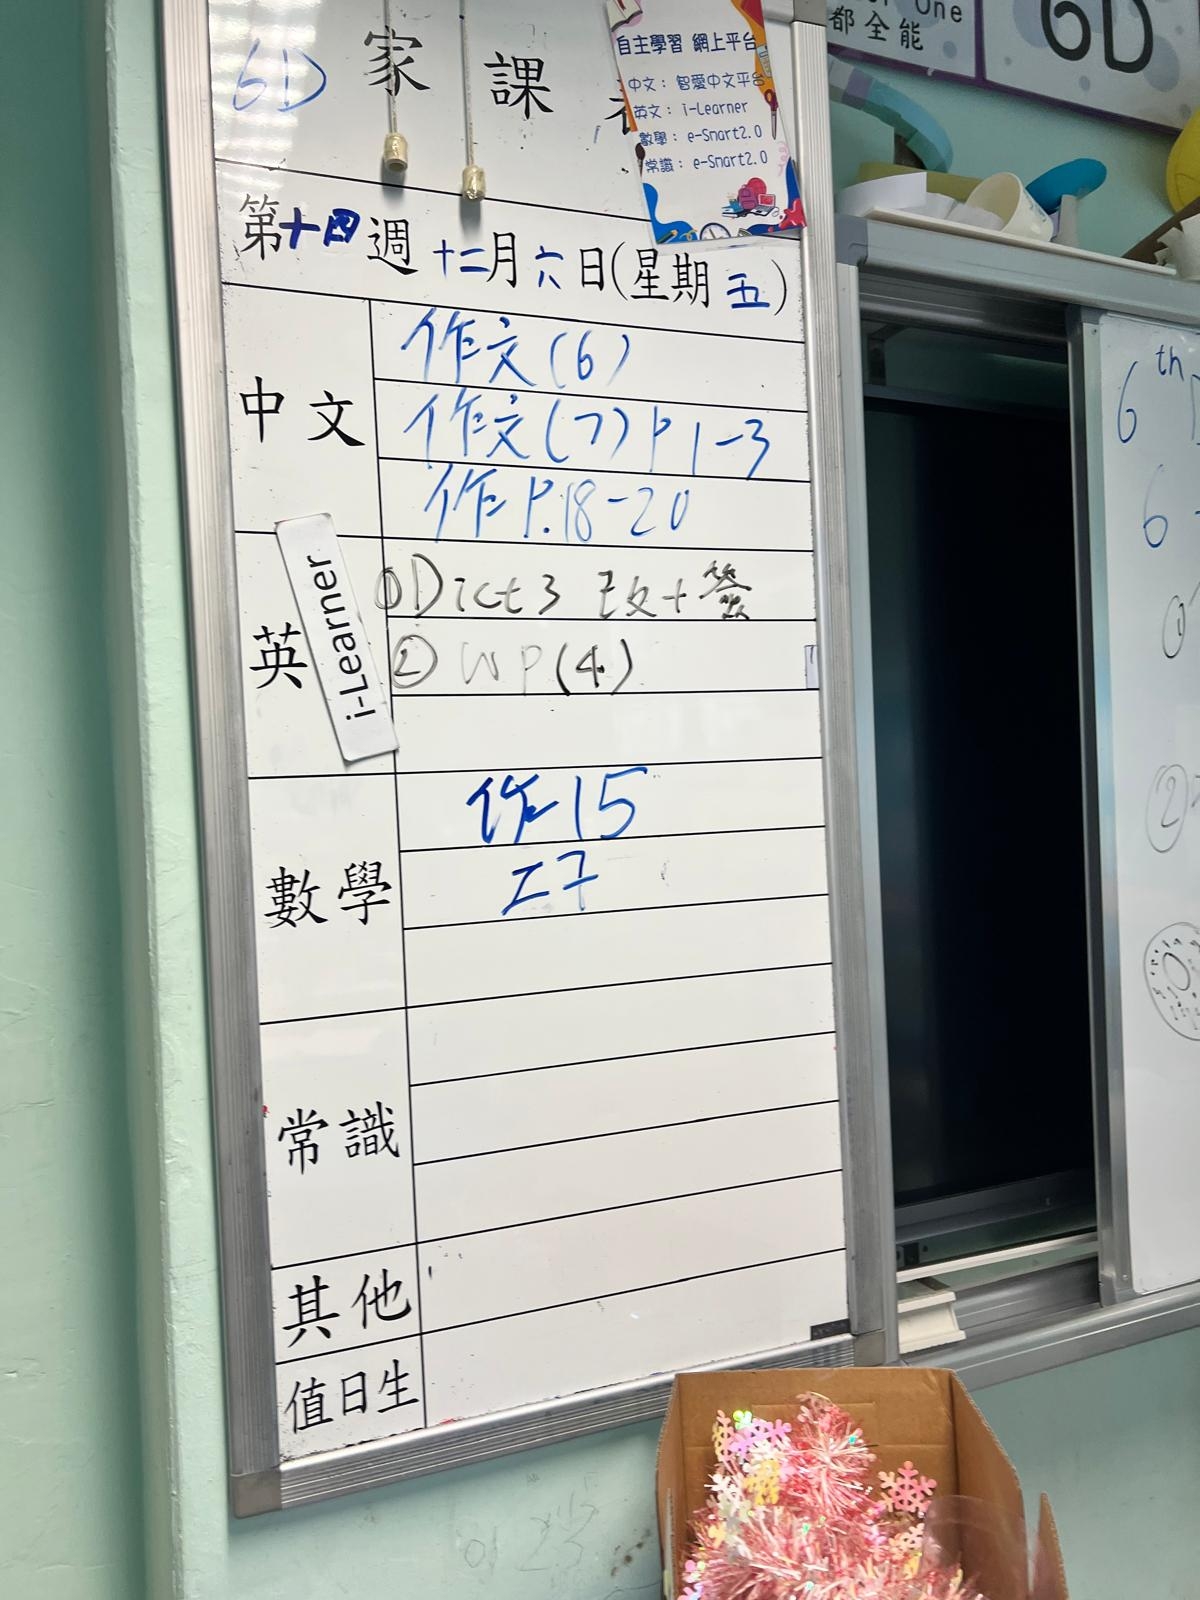 6D 家課
自主學習 網上平台
中文：智愛中文平台
英文：i-Learner
數學：e-Smart2.0
常識：e-Smart2.0
One
都全能
6D
第十四週 十二月六日(星期五)
中文
作文(6)
作文(7)P1-3
作P.18-20
英
i-Learner
①Dict3 改+簽
② WP(4)
數學
作15
工7
常識
其他
值日生
6th
6
①
②